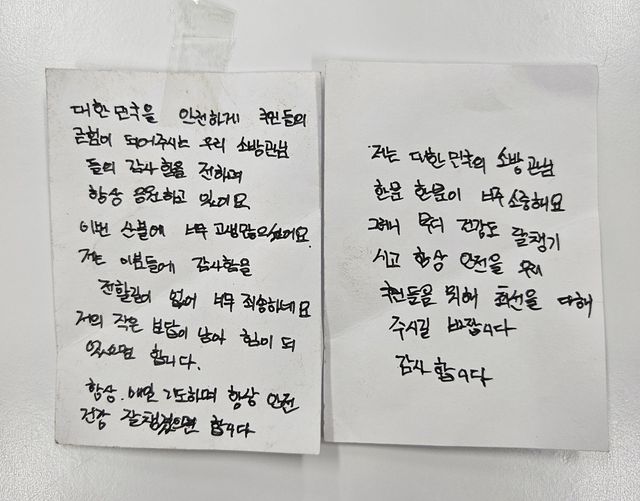 대한민국을 안전하게 국민들의
큰힘이 되어주시는 우리 소방관님
들의 감사함을 전하며
항상 응원하고 있어요
이번 산불에 너무 고생많으셨어요.
저는 이분들에 감사함을
전할길이 없어 너무 죄송하네요
저의 작은 보답이 남아 힘이 되
었으면 합니다.
항상. 매일 기도하며 항상 안전
건강 잘챙겼으면 합니다
저는 대한민국의 소방관님
한분 한분이 너무 소중해요
그러니 부디 건강도 잘챙기
시고 항상 안전을 우리
국민들을 위해 최선을 다해
주시길 바랍니다
감사 합니다